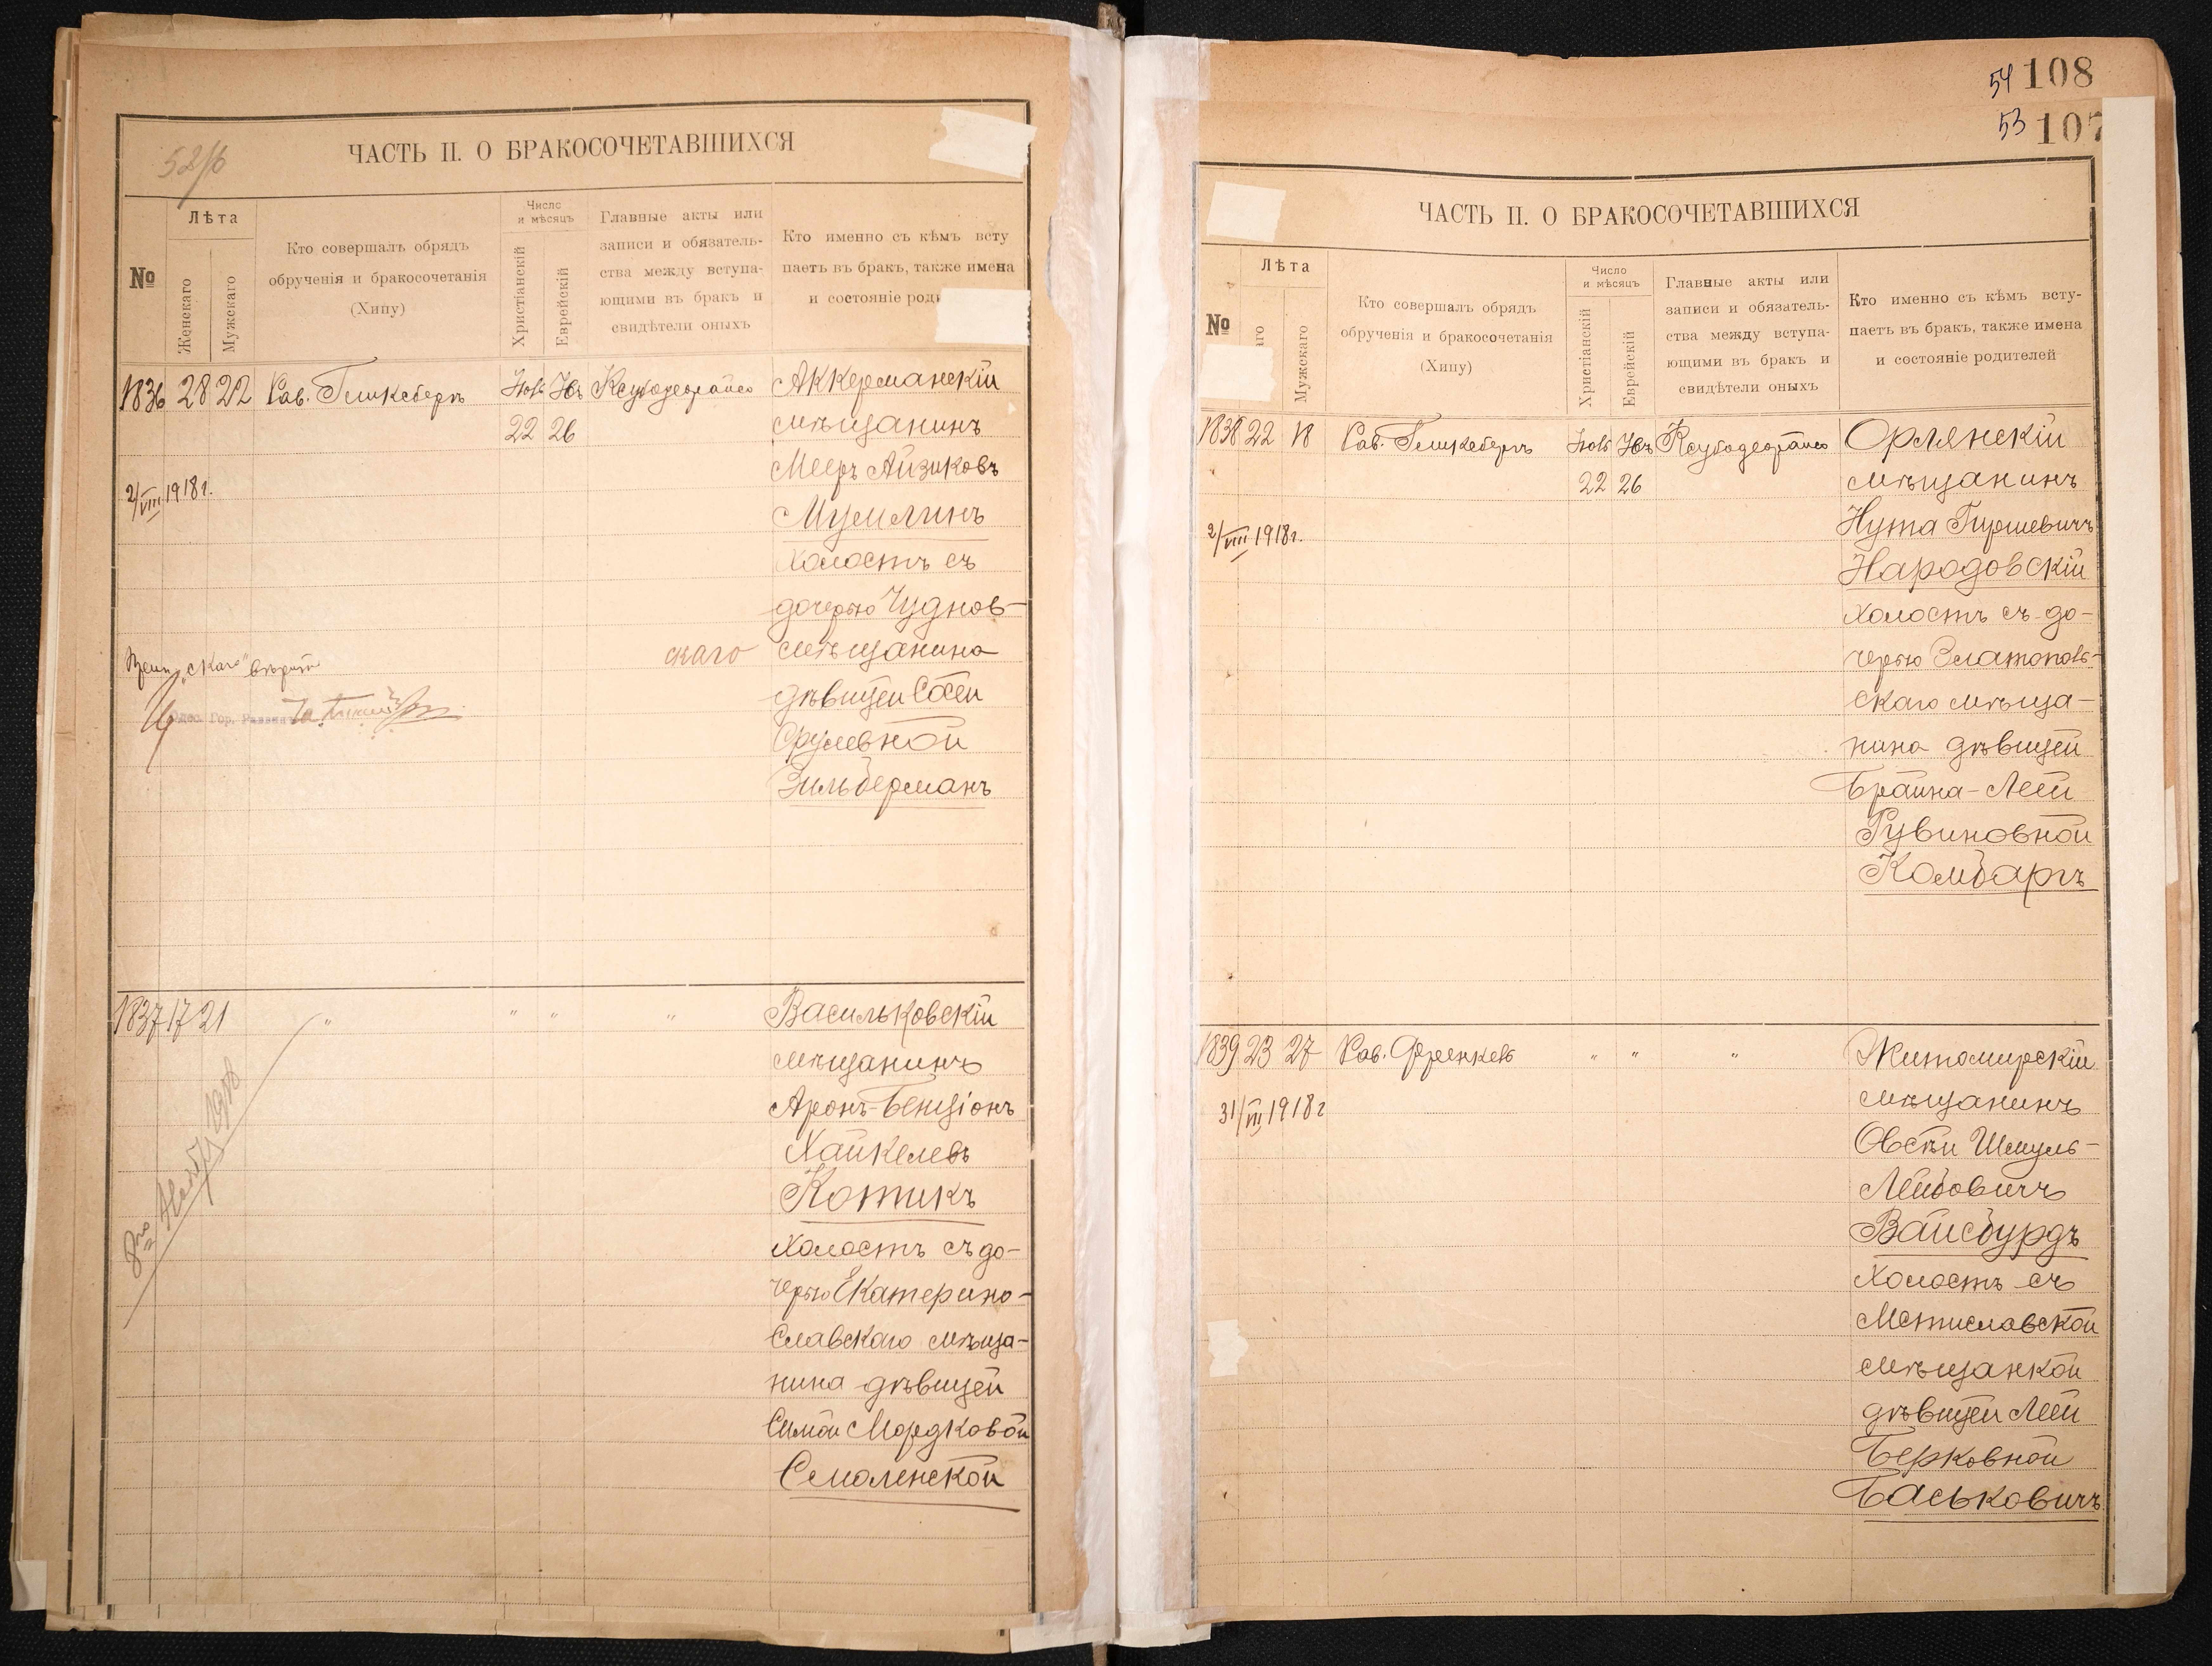 52/б
ЧАСТЬ II. О БРАКОСОЧЕТАВШИХСЯ
№
Лѣта
Женскаго
Мужскаго
Кто совершалъ обрядъ
обрученія и бракосочетанія
(Хипу)
Число
и мѣсяцъ
Христіанскій
Еврейскій
Главные акты или
записи и обязатель-
ства между вступа-
ющими въ бракъ и
свидѣтели оныхъ
Кто именно съ кѣмъ всту
паетъ въ бракъ, также имена
и состояніе роди
1836 28 22 Рав. Гликсбергъ
22 26
Ксубодеорайсо
Аккерманскій
мѣщанинъ
Мееръ Айзиковъ
Мумлинъ
холостъ съ
дочерью Чуднов-
скаго мѣщанина
дѣвицей Сости
Срулевной
Зильберманъ
2/VIII 1918 г.
"скаго" вѣрить
Одес. Гор. Раввинъ
1837 17 21 " " " "
Васильковскій
мѣщанинъ
Аронъ-Бенціонъ
Хайкелевъ
Котикъ
холостъ съ до-
черью Екатерино-
славскаго мѣща-
нина дѣвицей
Симой Мордковой
Смоленской
54 108
53 107
ЧАСТЬ II. О БРАКОСОЧЕТАВШИХСЯ
№
Лѣта
аго
Мужскаго
Кто совершалъ обрядъ
обрученія и бракосочетанія
(Хипу)
Число
и мѣсяцъ
Христіанскій
Еврейскій
Главные акты или
записи и обязатель-
ства между вступа-
ющими въ бракъ и
свидѣтели оныхъ
Кто именно съ кѣмъ всту-
паетъ въ бракъ, также имена
и состояніе родителей
1838 22 18 Рав. Гликсбергъ
22 26
Ксубодеорайсо
Орлянскій
мѣщанинъ
Нута Гиршевичъ
Народовскій
холостъ съ до-
черью Златополь-
скаго мѣща-
нина дѣвицей
Брайна-Леей
Рувиновной
Комбаръ
2/VIII 1918 г.
1839 23 27 Рав. Френкель " " "
Житомирскій
мѣщанинъ
Овсѣй Шмуль-
Лейбовичъ
Вайсбурдъ
холостъ съ
Мстиславской
мѣщанкой
дѣвицей Леей
Берковной
Баськовичъ
31/VII 1918 г